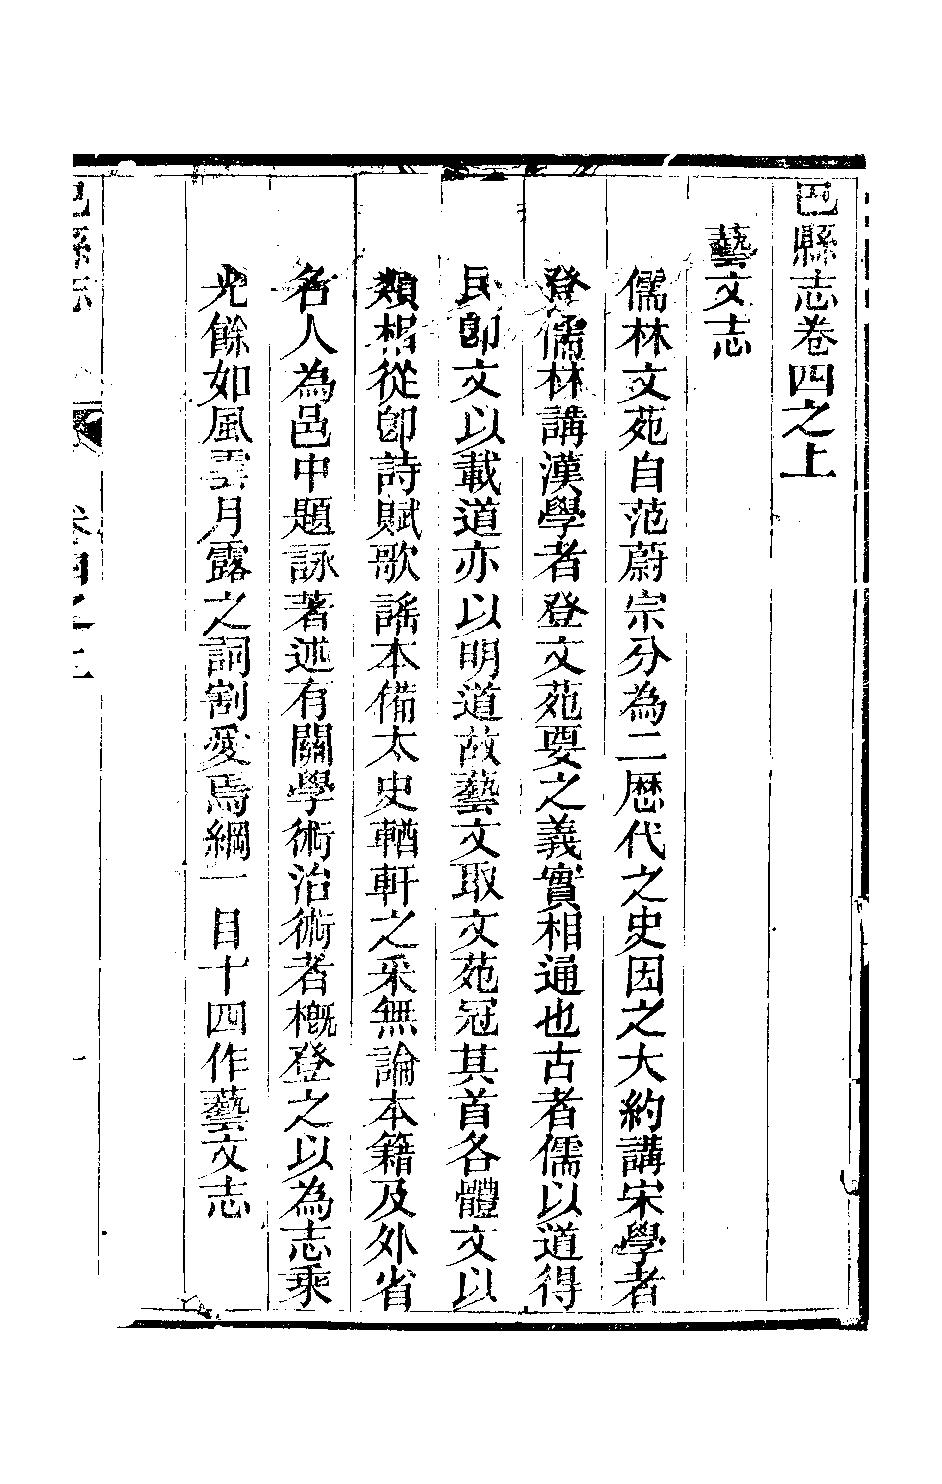 巴縣志卷四之上
藝文志
儒林文苑自范蔚宗分為二歷代之史因之大約講宋學者
登儒林講漢學者登文苑要之義實相通也古者儒以道得
民卽文以載道亦以明道故藝文取文苑冠其首各體文以
類相從卽詩賦歌謠本備太史輶軒之采無論本籍及外省
名人為邑中題詠著述有關學術治術者槪登之以為志乘
光餘如風雲月露之詞割愛焉綱一目十四作藝文志
巴縣志 卷四之上 一